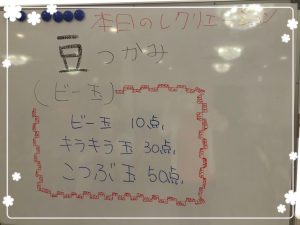 本日のレクリエーション
豆つかみ
(ビー玉)
ビー玉 10点,
キラキラ玉 30点,
こつぶ玉 50点,